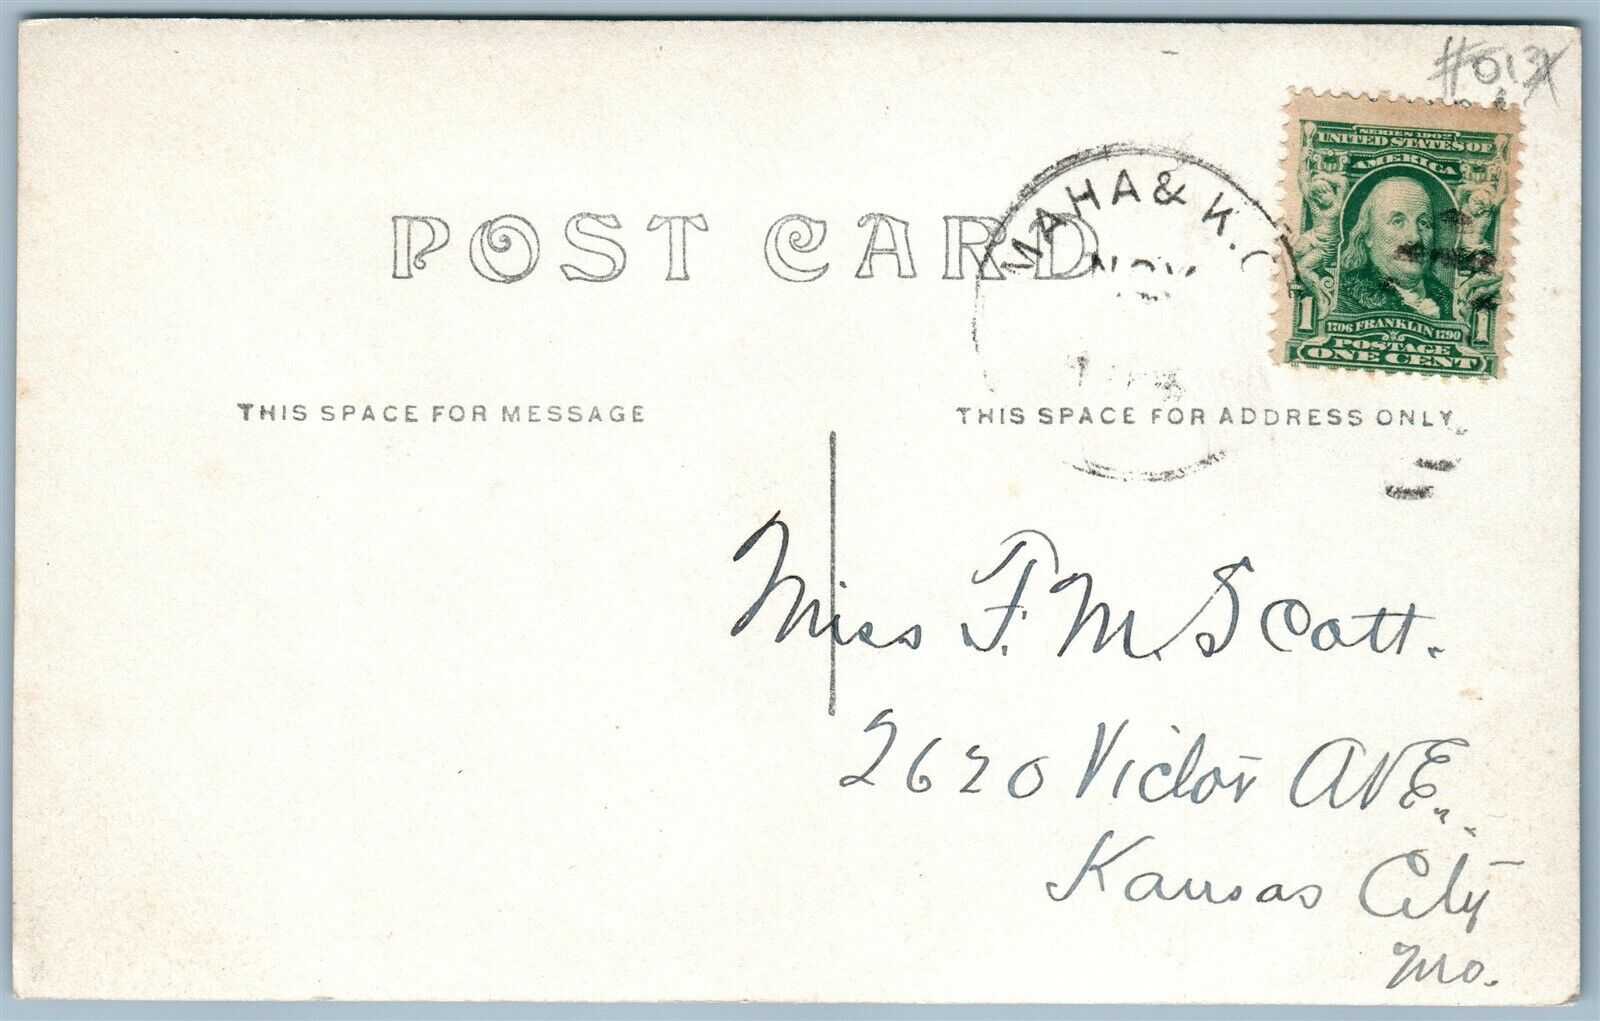 #013X
SERIES 1902
UNITED STATES OF
AMERICA
1 1706 FRANKLIN 1790 1
POSTAGE
ONE CENT
MAHA & K.C
NOV
POST CARD
THIS SPACE FOR MESSAGE
THIS SPACE FOR ADDRESS ONLY
Miss F. M. Scott.
2620 Victor AVE.
Kansas City
Mo.